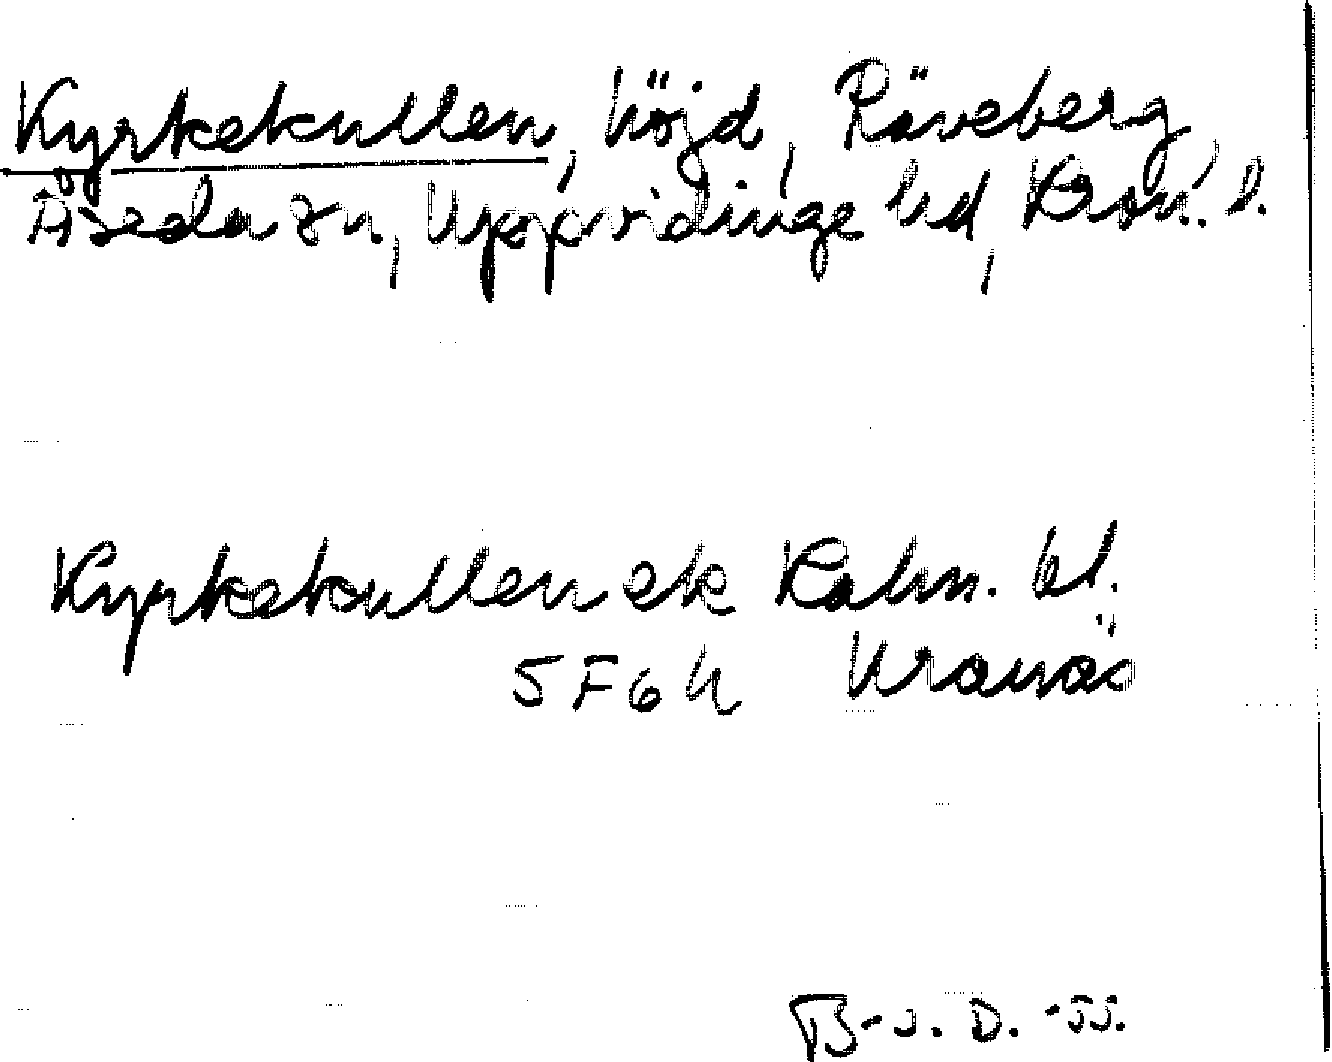 Kyrkekullen, höjd, Räveberg,
Åseda sn, Uppvidinge hd, Kron. l.
Kyrkekullen ek Kalm. bl.
5F6h Kronoä
B-s. D. -55.